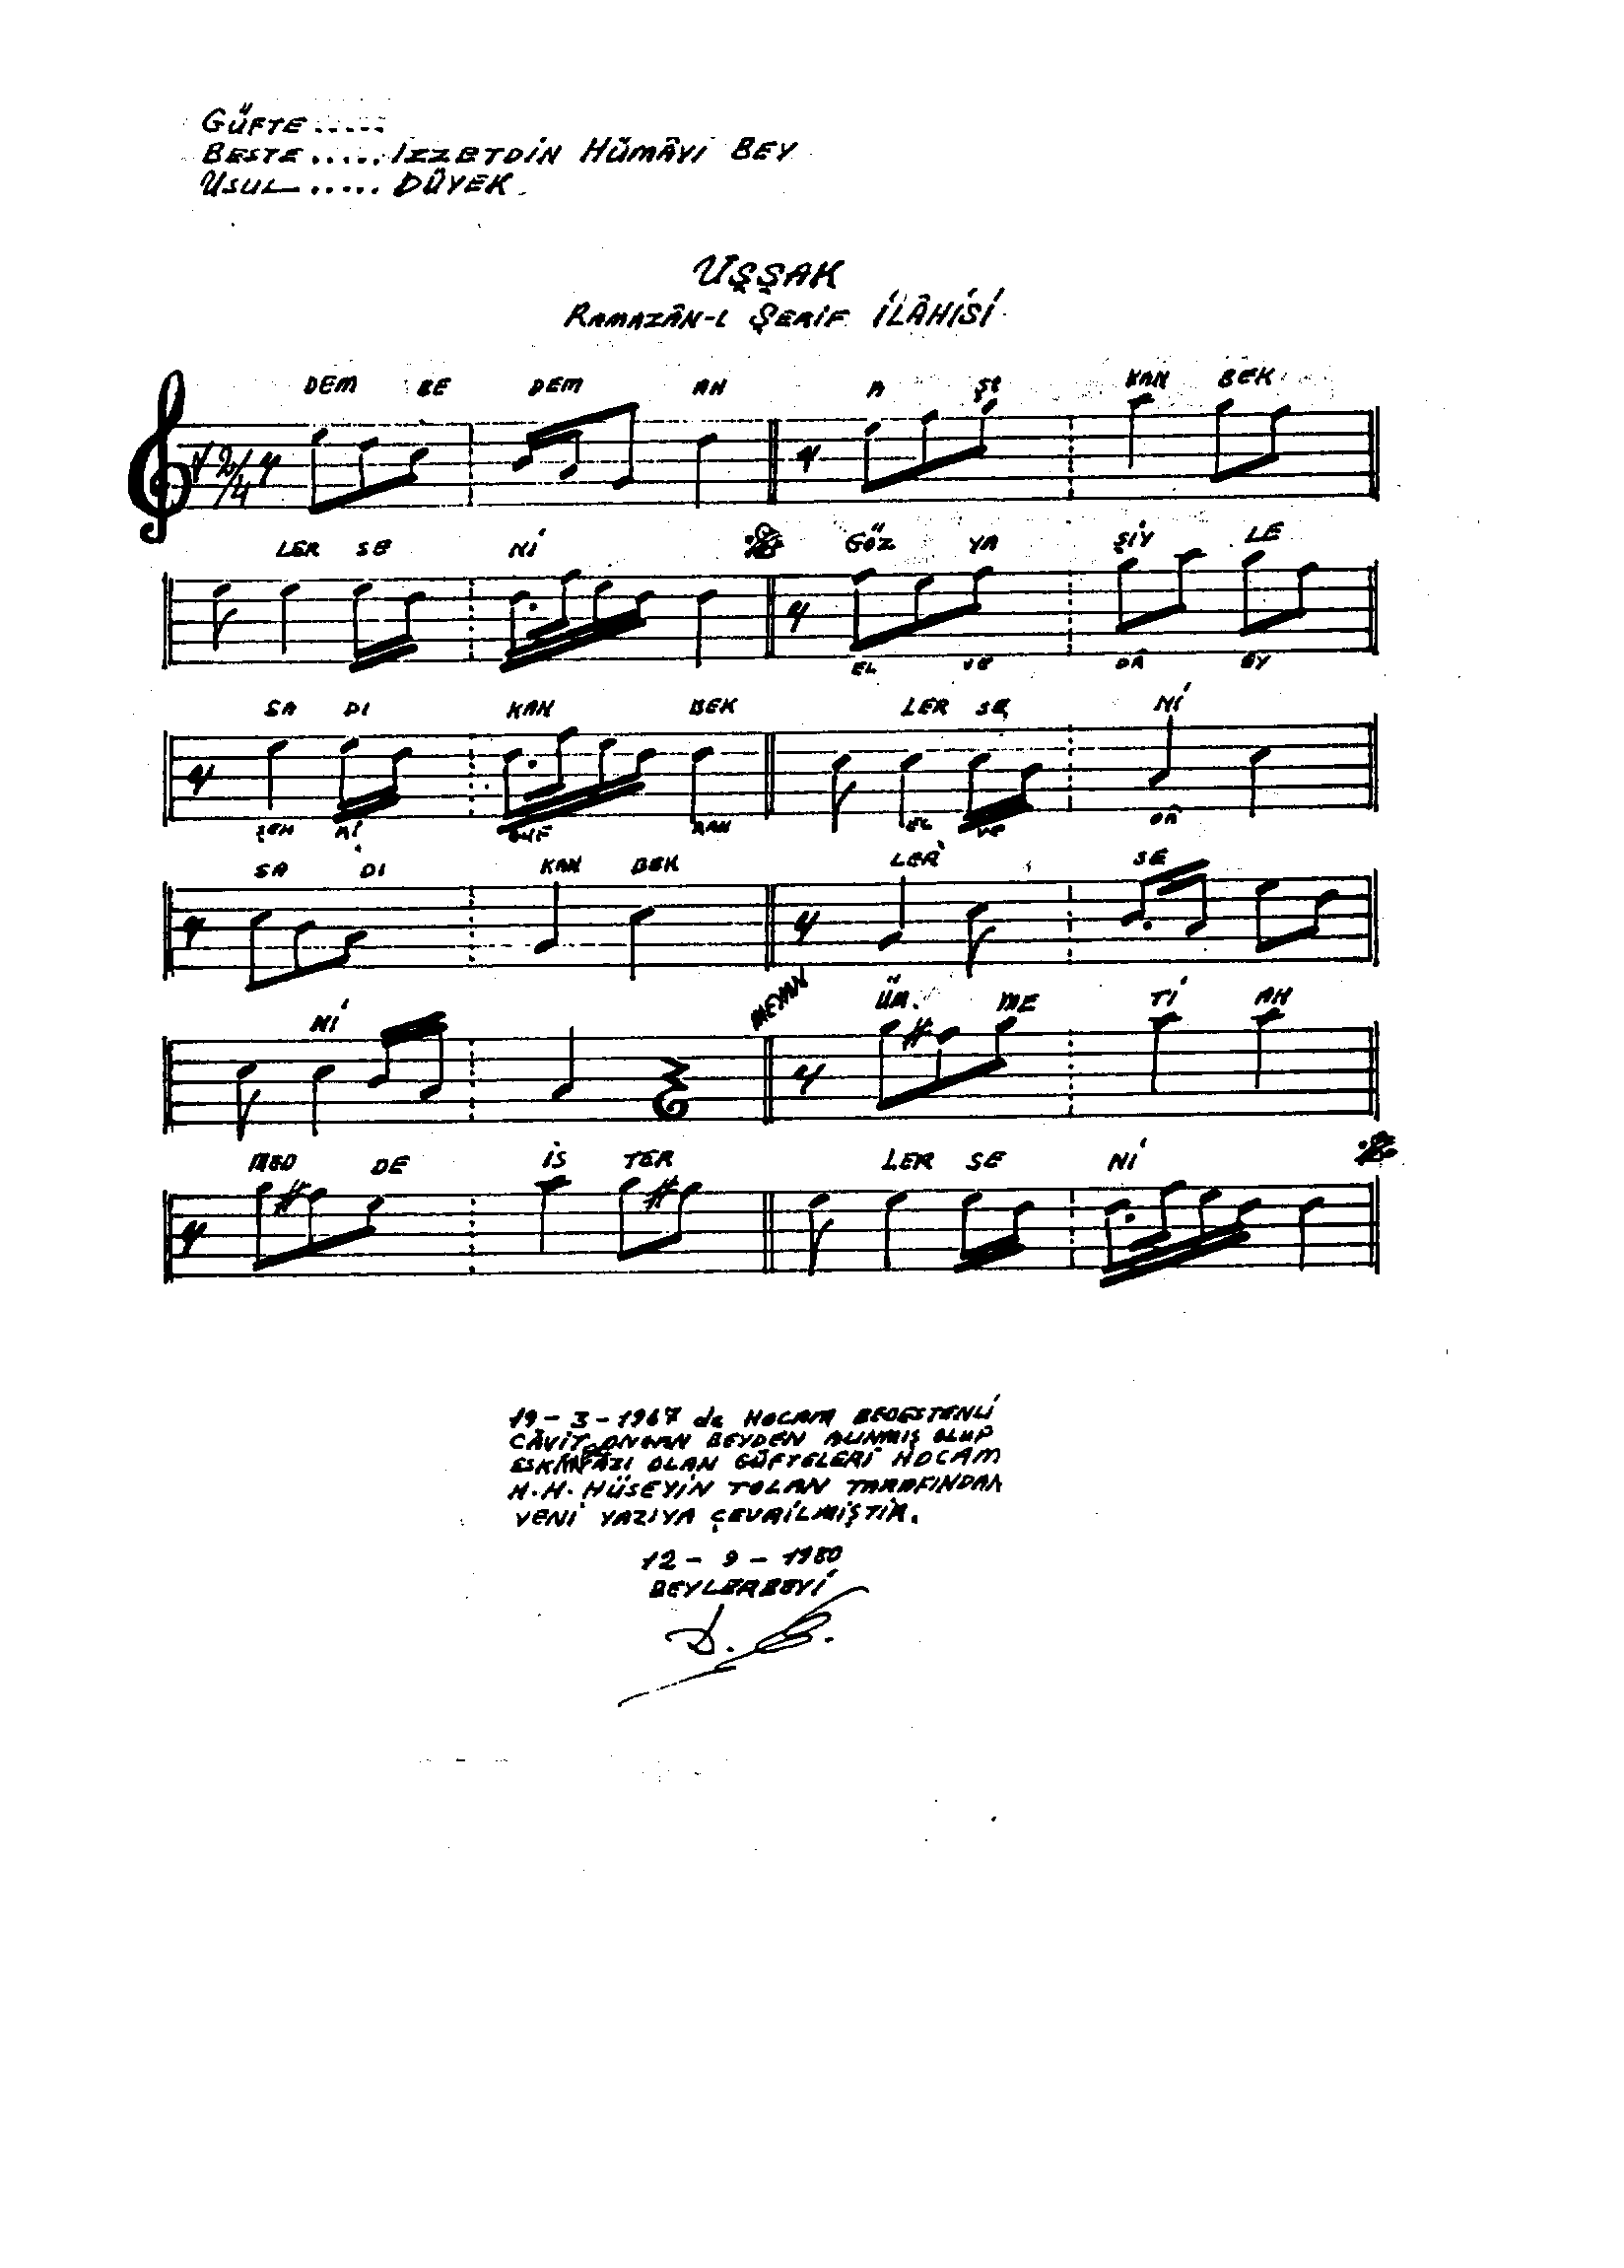 GÜFTE.....
BESTE.....İZZETDİN HÜMÂYİ BEY
USUL.....DÜYEK.
UŞŞAK
RAMAZÂN-I ŞERİF İLÂHİSİ
DEM BE DEM AH A ŞI KAN BEK
2/4
LER SE Nİ GÖZ YA ŞİY LE
EL VE DÂ EY
SA DI KAN BEK LER SE Nİ
ŞEH Rİ GUF RAN EL VE DÂ
SA DI KAN BEK LER SE
Nİ MEYAN ÜM. ME Tİ AH
MED DE İS TER LER SE Nİ
19-3-1967 de HOCAM BEDESTENLİ
CÂVİT ONGAN BEYDEN ALINMIŞ OLUP
OLAN GÜFTELERİ HOCAM
H.H. HÜSEYİN TOLAN TARAFINDAN
YENİ YAZIYA ÇEVRİLMİŞTİR.
12-9-1980
BEYLERBEYİ